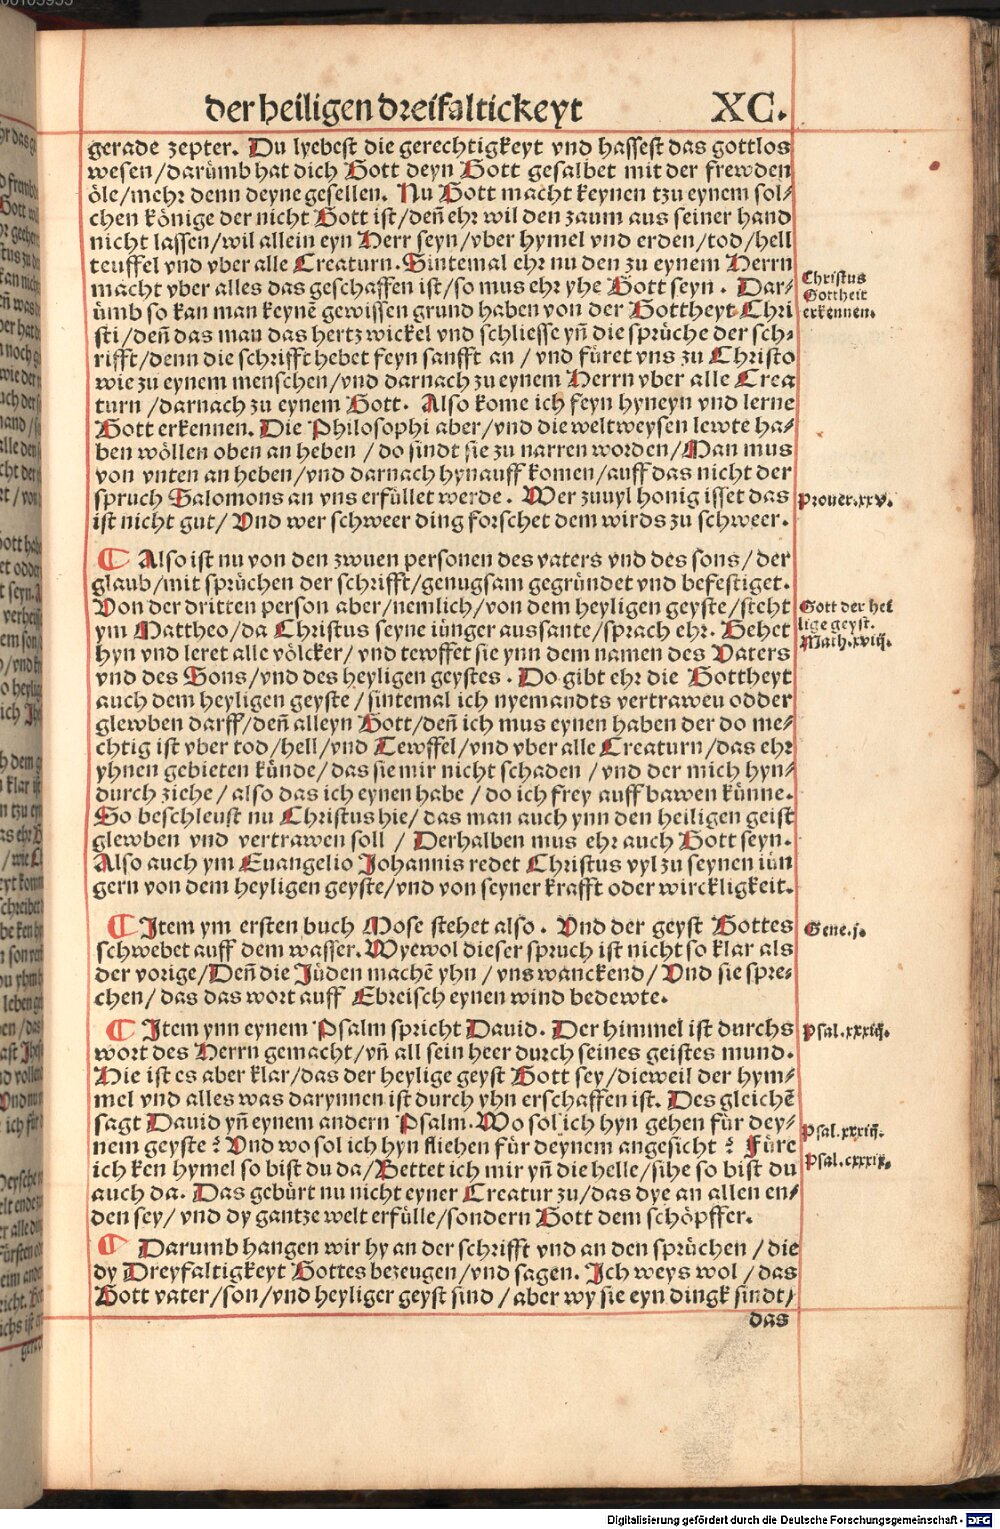 der heiligen dreifaltickeyt XC.
gerade zepter. Du lyebest die gerechtigkeyt vnd hassest das gottlos
wesen/darümb hat dich Gott deyn Gott gesalbet mit der frewden
öle/mehr denn deyne gesellen. Nu Gott macht keynen tzu eynem sol⸗
chen könige der nicht Gott ist/deñ ehr wil den zaum aus seiner hand
nicht lassen/wil allein eyn Herr seyn/vber hymel vnd erden/tod/hell
teuffel vnd vber alle Creaturn. Sintemal ehr nu den zu eynem Herrn
macht vber alles das geschaffen ist/so mus ehr yhe Gott seyn. Dar⸗
ümb so kan man keynē gewissen grund haben von der Gottheyt Chri
sti/deñ das man das hertz wickel vnd schliesse yñ die sprüche der sch⸗
rifft/denn die schrifft hebet feyn sanfft an/vnd füret vns zu Christo
wie zu eynem menschen/vnd darnach zu eynem Herrn vber alle Crea
turn/darnach zu eynem Gott. Also kome ich feyn hyneyn vnd lerne
Gott erkennen. Die Philosophi aber/vnd die weltweysen lewte ha⸗
ben wöllen oben an heben/do sindt sie zu narren worden/Man mus
von vnten an heben/vnd darnach hynauff komen/auff das nicht der
spruch Salomons an vns erfüllet werde. Wer zuuyl honig isset das
ist nicht gut/Vnd wer schweer ding forschet dem wirds zu schweer.
Christus
Gottheit
erkennen.
Prouer.xxv.
¶ Also ist nu von den zwuen personen des vaters vnd des sons/der
glaub/mit sprüchen der schrifft/genugsam gegründet vnd befestiget.
Von der dritten person aber/nemlich/von dem heyligen geyste/steht
ym Mattheo/da Christus seyne iünger aussante/sprach ehr. Gehet
hyn vnd leret alle völcker/vnd tewffet sie ynn dem namen des Vaters
vnd des Sons/vnd des heyligen geystes. Do gibt ehr die Gottheyt
auch dem heyligen geyste/sintemal ich nyemandts vertraweu odder
glewben darff/deñ alleyn Gott/deñ ich mus eynen haben der do me⸗
chtig ist vber tod/hell/vnd Tewffel/vnd vber alle Creaturn/das ehr
yhnen gebieten künde/das sie mir nicht schaden/vnd der mich hyn⸗
durch ziehe/also das ich eynen habe/do ich frey auff bawen künne.
So beschleust nu Christus hie/das man auch ynn den heiligen geist
glewben vnd vertrawen soll/Derhalben mus ehr auch Gott seyn.
Also auch ym Euangelio Johannis redet Christus vyl zu seynen iün
gern von dem heyligen geyste/vnd von seyner krafft oder wirckligkeit.
Gott der hei
lige geyst.
Math.xviij.
¶ Item ym ersten buch Mose stehet also. Vnd der geyst Gottes
schwebet auff dem wasser. Wyewol dieser spruch ist nicht so klar als
der vorige/Deñ die Jüden machē yhn/vns wanckend/Vnd sie spre⸗
chen/das das wort auff Ebreisch eynen wind bedewte.
Gene.j.
¶ Item ynn eynem Psalm spricht David. Der himmel ist durchs
wort des Herrn gemacht/vñ all sein heer durch seines geistes mund.
Hie ist es aber klar/das der heylige geyst Gott sey/dieweil der hym⸗
mel vnd alles was darynnen ist durch yhn erschaffen ist. Des gleichē
sagt David yñ eynem andern Psalm. Wo sol ich hyn gehen für dey⸗
nem geyste? Vnd wo sol ich hyn fliehen für deynem angesicht? Füre
ich ken hymel so bist du da/Bettet ich mir yñ die helle/sihe so bist du
auch da. Das gebürt nu nicht eyner Creatur zu/das dye an allen en⸗
den sey/vnd dy gantze welt erfülle/sondern Gott dem schöpffer.
Psal.xxxiij.
Psal.xxxiij.
Psal.cxxxix.
¶ Darumb hangen wir hy an der schrifft vnd an den sprüchen/die
dy Dreyfaltigkeyt Gottes bezeugen/vnd sagen. Ich weys wol/das
Gott vater/son/vnd heyliger geyst sind/aber wy sie eyn dingk sindt/
das
Digitalisierung gefördert durch die Deutsche Forschungsgemeinschaft - DFG